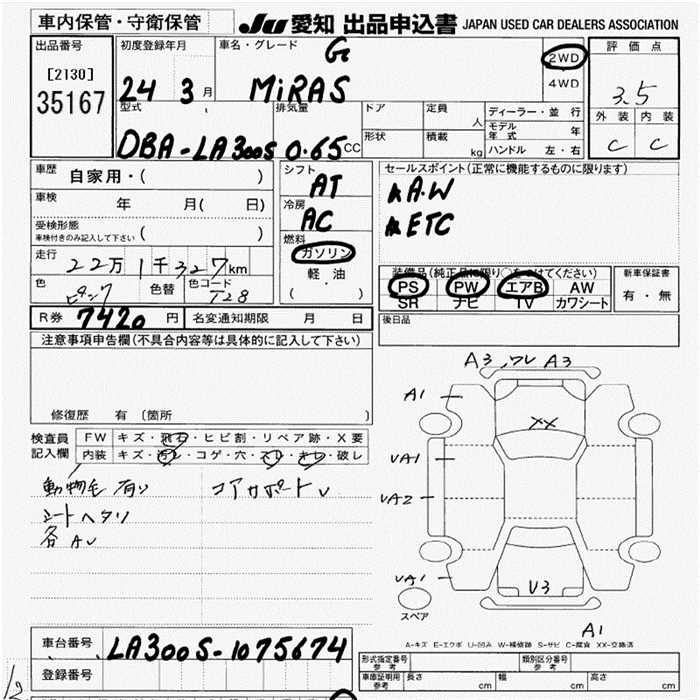 車内保管・守衛保管
JU 愛知 出品申込書 JAPAN USED CAR DEALERS ASSOCIATION
出品番号
[2130]
35167
初度登録年月
24 3 月
車名・グレード
G
MiRAS
2WD
4WD
評価点
3.5
外装 内装
C C
型式
DBA-LA300S
排気量
0.65 CC
ドア
形状
定員
人
積載
kg
ディーラー・並行
モデル年式 年
ハンドル 左・右
車歴
自家用・( )
車検
年 月( 日)
受検形態
車検付きのみ記入して下さい ( )
走行
22万1千327km
色
ピンク
色替
色コード
T28
シフト
AT
冷房
AC
燃料
ガソリン
軽油
( ・ )
セールスポイント(正常に機能するものに限ります)
A.W
ETC
装備品(純正品に限り○をつけてください)
PS PW エアB AW
SR ナビ TV カワシート
新車保証書
有・無
R券 7420 円
名変通知期限 月 日
後日品
注意事項申告欄(不具合内容等は具体的に記入して下さい)
修復歴 有 [箇所 ]
検査員
記入欄
FW キズ・飛石・ヒビ割・リペア跡・X要
内装 キズ・汚レ・コゲ・穴・スレ・キレ・破レ
動物毛有り コアサポートU
シートヘタリ
各AU
A3 ワレ A3
A1
XX
UA1
UA2
UA1
U3
スペア
A1
A-キズ E-エクボ U-凹み W-補修跡 S-サビ C-腐食 XX-交換済
車台番号 LA300S-1075674
登録番号
形式指定番号
参考
類別区分番号
参考
車庫証明用
参考
長さ cm 幅 cm 高さ cm